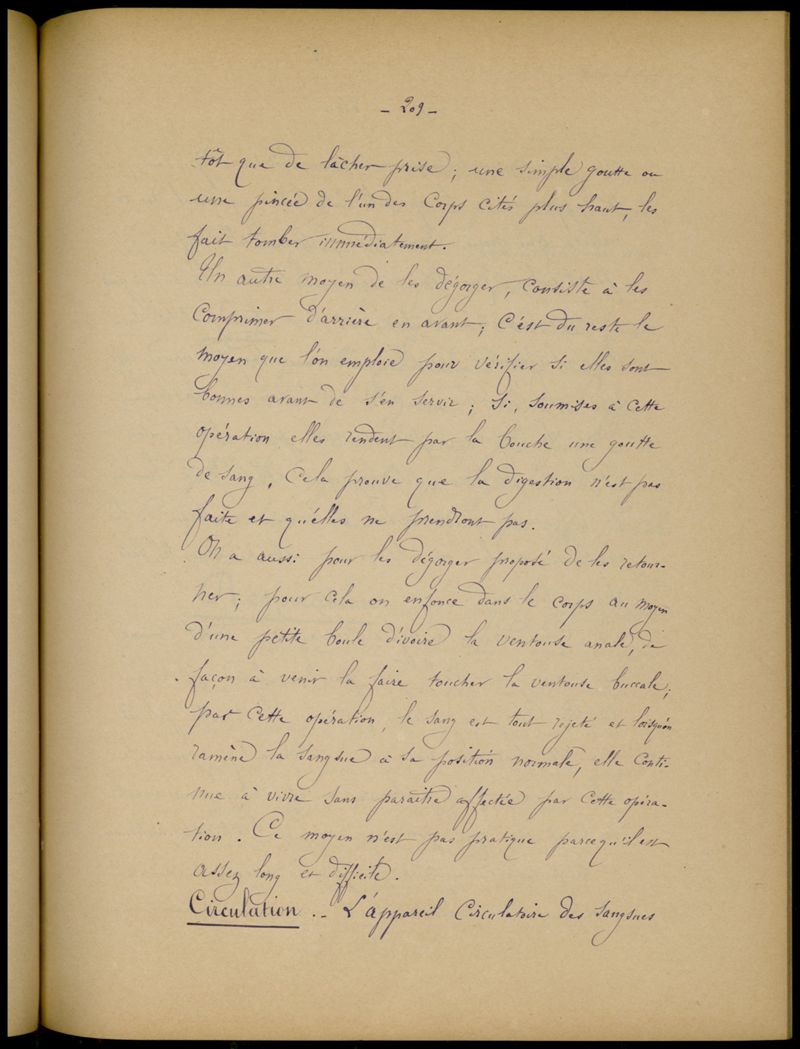 - 209 -
tôt que de lâcher prise; une simple goutte ou
une pincée de l'un des Corps cités plus haut, les
fait tomber immédiatement.
Un autre moyen de les dégorger, consiste à les
Comprimer d'arrière en avant; C'est du reste le
moyen que l'on emploie pour vérifier si elles sont
bonnes avant de s'en servir; Si, soumises à cette
opération elles rendent par la bouche une goutte
de sang, Cela prouve que la digestion n'est pas
faite et qu'elles ne prendront pas.
On a aussi pour les dégorger proposé de les retour-
ner; pour cela on enfonce dans le corps au moyen
d'une petite boule d'ivoire la ventouse anale, de
façon à venir la faire toucher la ventouse buccale;
par cette opération, le sang est tout rejeté et lorsqu'on
ramène la sangsue à sa position normale, elle conti-
nue à vivre sans paraître affectée par cette opéra-
tion. Ce moyen n'est pas pratique parcequ'il est
assez long et difficile.
Circulation.- L'appareil Circulatoire des sangsues